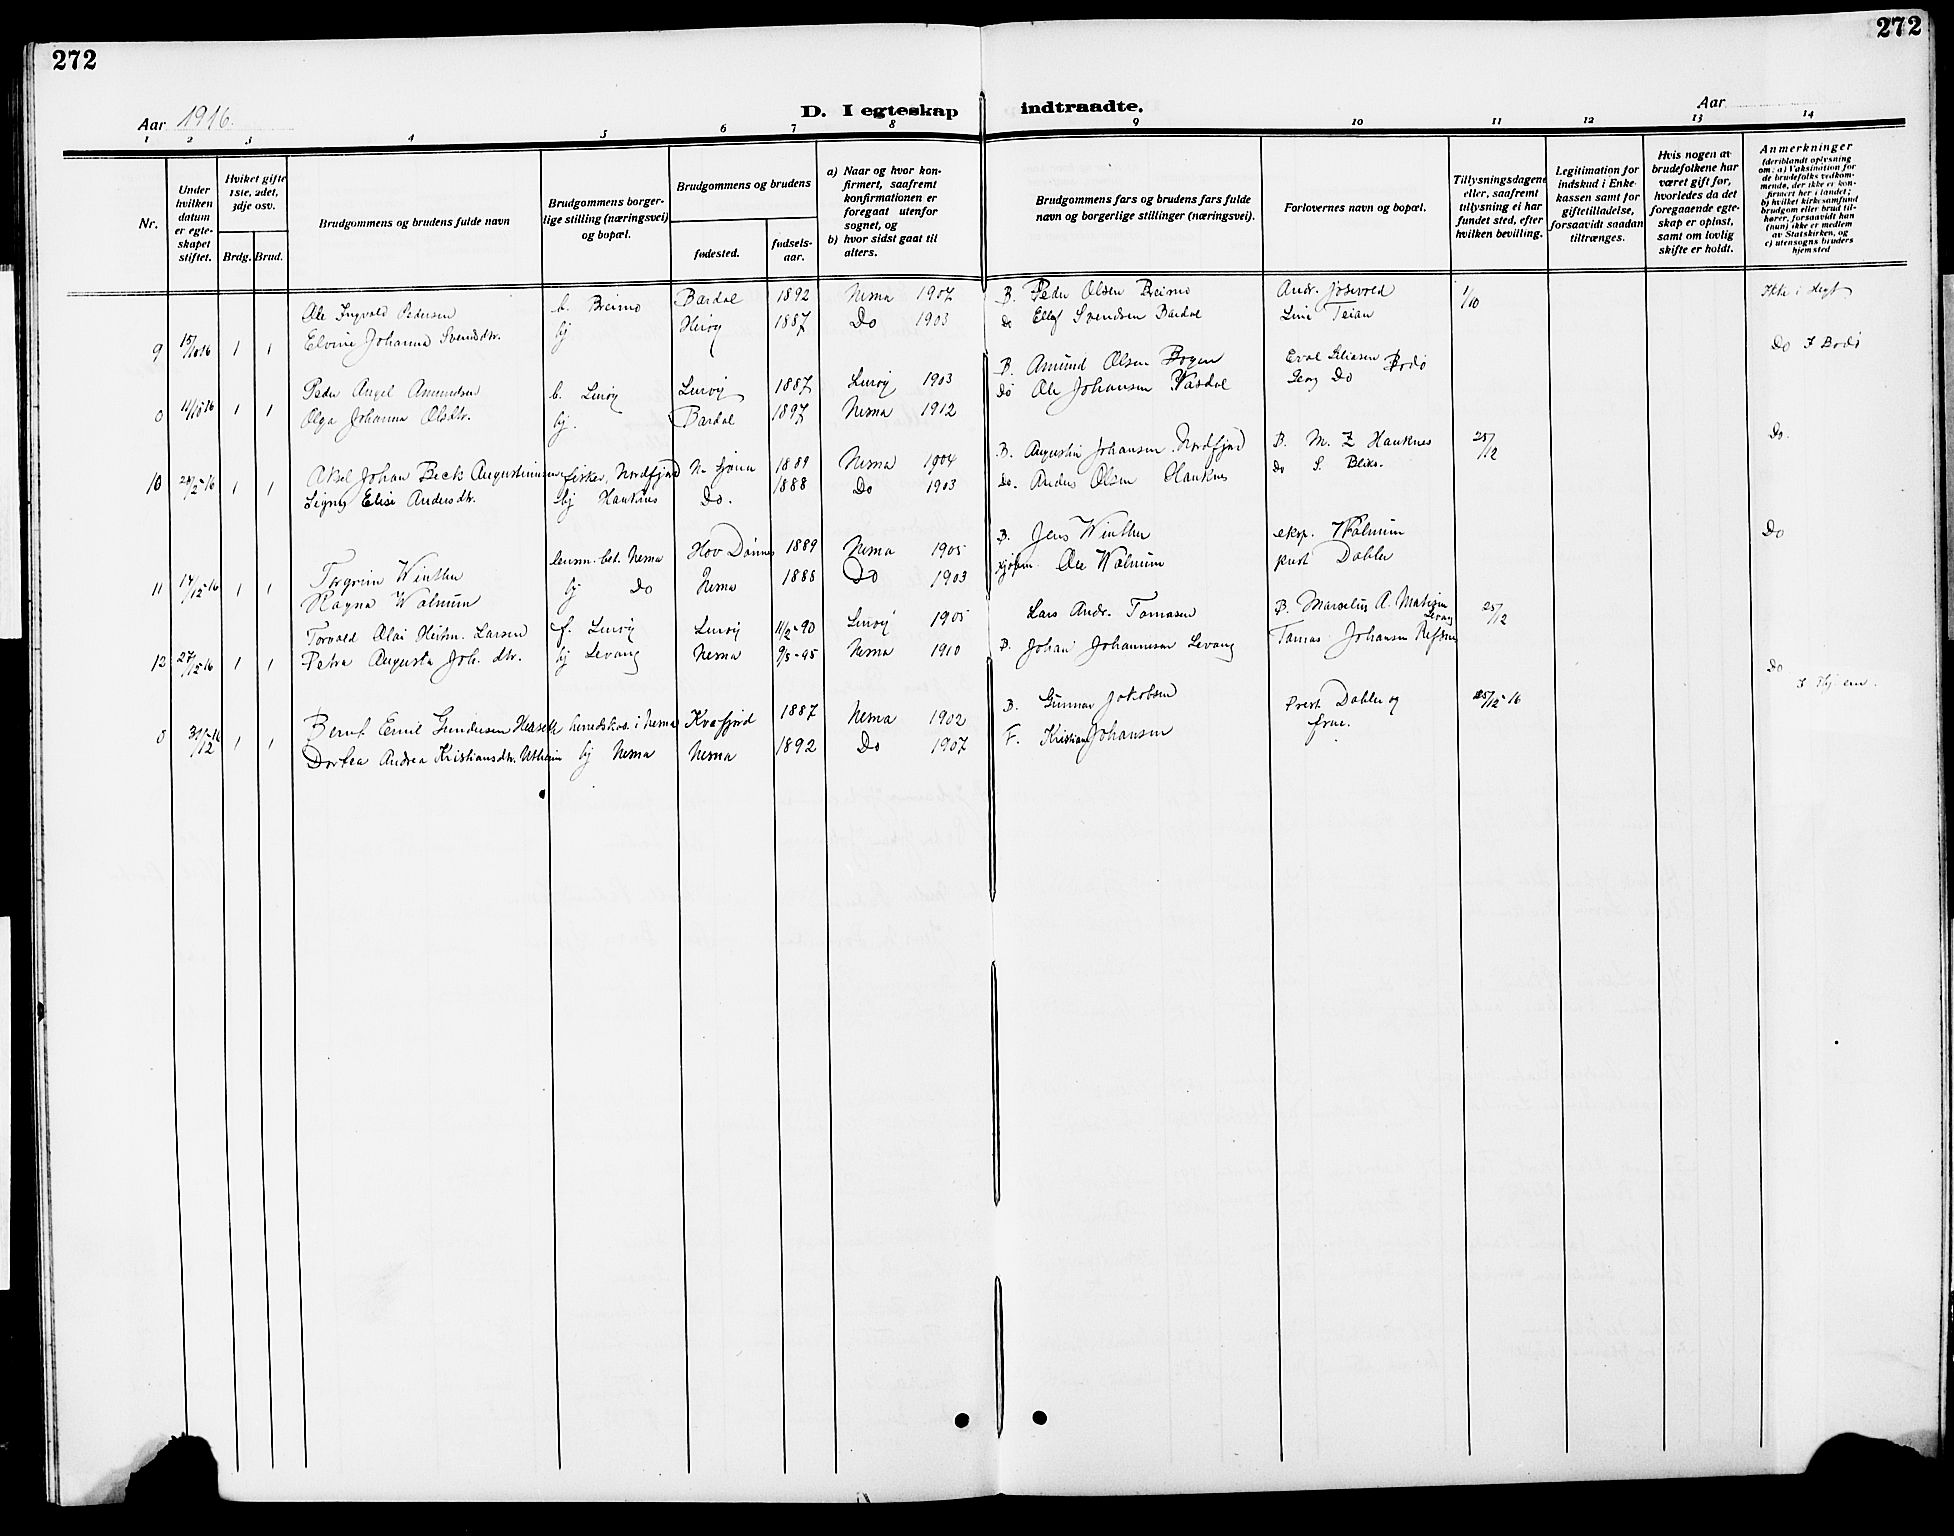 272
272
Aar 1916.
D. I egteskap indtraadte.
Aar
1 2 3 4 5 6 7 8 9 10 11 12 13 14
Nr.
Under hvilken datum er egteskapet stiftet.
Hviket gifte 1ste, 2det, 3dje osv.
Brdg. Brud.
Brudgommens og brudens fulde navn
Brudgommens borgerlige stilling (næringsvei) og bopæl.
Brudgommens og brudens
fødested.
fødselsaar.
a) Naar og hvor konfirmert, saafremt konfirmationen er foregaat utenfor sognet, og
b) hvor sidst gaat til alters.
Brudgommens fars og brudens fars fulde navn og borgerlige stillinger (næringsvei).
Forlovernes navn og bopæl.
Tillysningsdagene eller, saafremt tillysning ei har fundet sted, efter hvilken bevilling.
Legitimation for indskud i Enkekassen samt for giftetilladelse, forsaavidt saadan tiltrænges.
Hvis nogen av brudefolkene har været gift før, hvorledes da det foregaaende egteskap er opløst, samt om lovlig skifte er holdt.
Anmerkninger (deriblandt oplysning om: a) Vaksination for de brudefolks vedkommende, der ikke er konfirmert her i landet; b) hvilket kirkesamfund brudgom eller brud tilhører, forsaavidt han (hun) ikke er medlem av Statskirken, og c) utensogns bruders hjemsted
Ole Ingvald Pedersen b. Breimo Bardal 1892 Nesna 1907 B. Peder Olsen Breimo Andr. 1/10 Ikke i slegt
9 15/10 16 1 1 Elvine Johanna Svendsdtr. hj Herøy 1887 Do 1903 do Ellef Svendsen Bardal Line Teian
Peder Angel Amundsen b. Lurøy Lurøy 1887 Lurøy 1903 B. Amund Olsen Bogen Bodø Do I Bodø
0 11/10 16 1 1 Olga Johanna Olsdtr. hj. Bardal 1897 Nesna 1912 do Ole Johansen Do
Aksel Johan Beck Augustinussen fisker, Nordfjord 1889 Nesna 1904 B. Augustin Johansen Nordfjord B. M. Z Hauknes 25/12 Do.
10 1 1 Signy Elise Andersdtr. hj Hauknes Do. 1888 Do 1903 do. Anders Olsen Hauknes do S. Bliks.
Torgrim Winther Nesna Hov Dønnes 1889 Nesna 1905 B. Jens Winther eksp. Walnum Do
11 17/12-16 1 1 Ragna Walnum hj Do Nesna 1888 Do 1903 Ole Walnum prest Dahler
Torvald Olai Larsen f. Lurøy Lurøy 11/2-90 Lurøy 1905 Lars Andr. Tomasen B. Marselius A. Levang 25/12
12 27/12-16 1 1 Petra Augusta Joh. dtr. hj Levang Nesna 9/5-95 Nesna 1910 B. Johan Johannesen Levang Tomas Johansen
Bernt Emil Gundersen herredskas. i Nesna Kvæfjord 1887 Nesna 1902 B. Gunnar Jakobsen Prest Dahler og 25/12-16 Do
0 1 1 Dortea Andrea Kristiansdtr. Utheim hj Nesna Nesna 1892 Do 1907 F. Kristian Johansen frue.